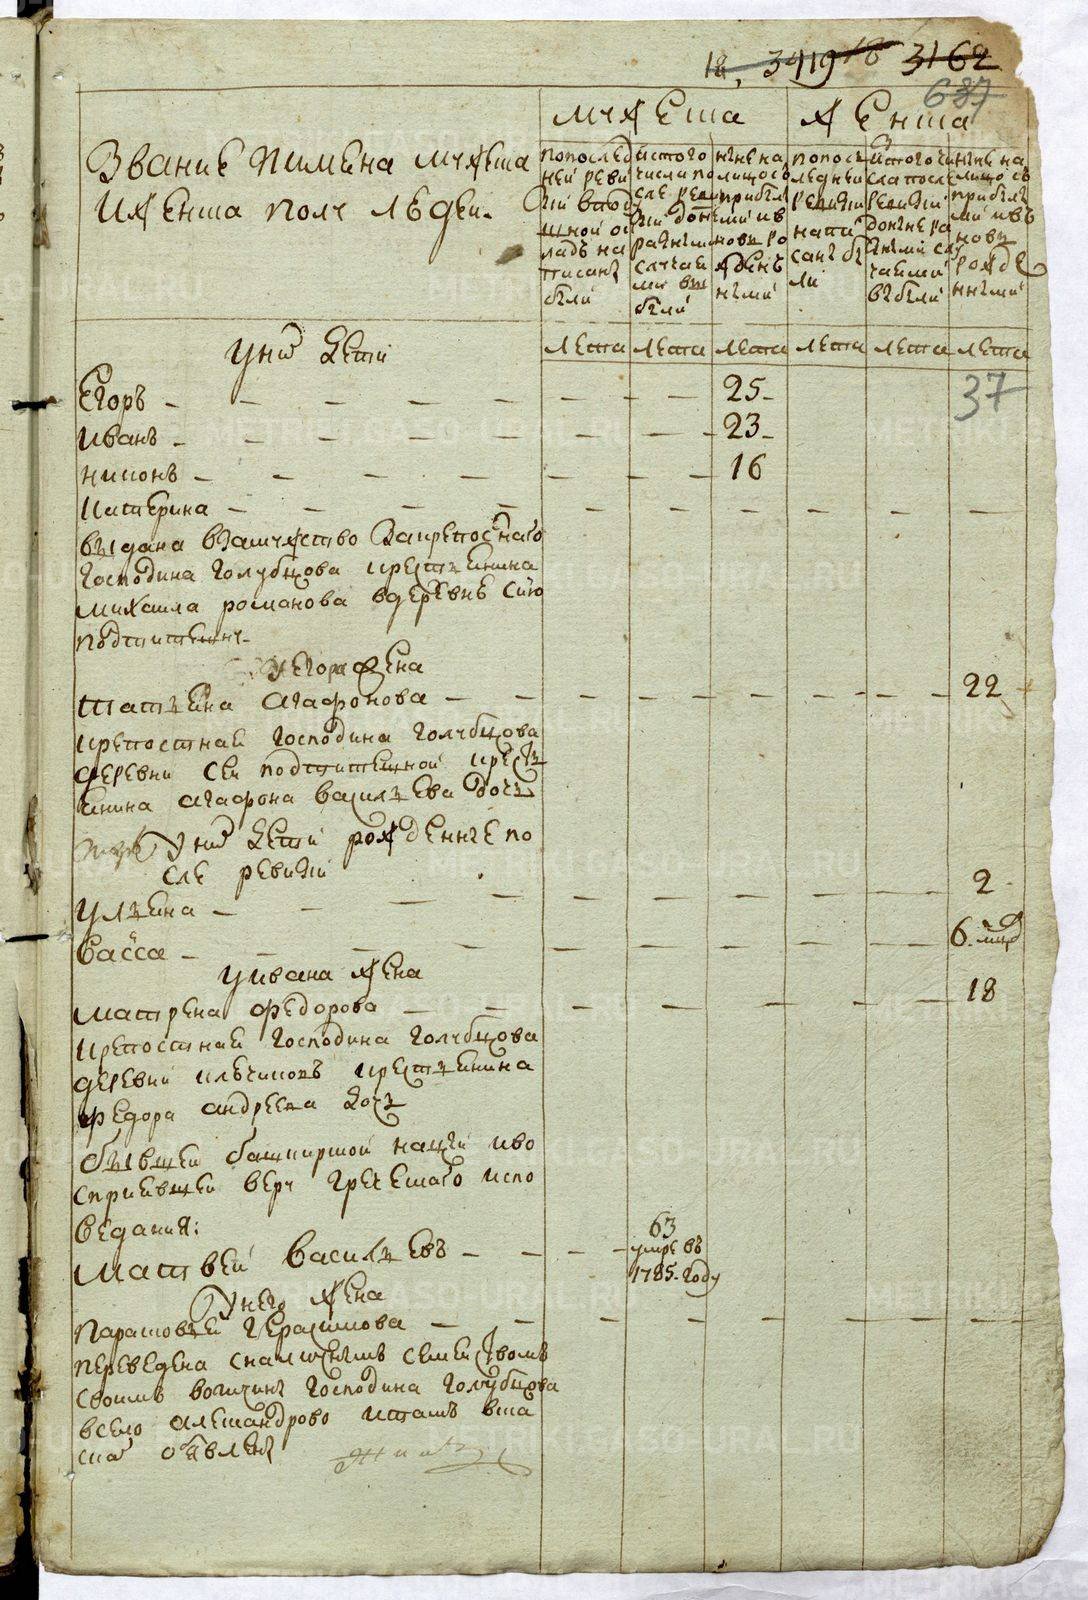 18, 3419 18 3162
687
мужеска женска
Звание имена мужеска
и женска полу людей.
попослед
ней реви
зии в под
ушной о
ладъ на
писаны
были
и того
числа по
сле реви
зии до ны
разными
случаи
ми вы
были
ныне на
лицо съ
прибыл
ми и в
новь ро
жден
ными
попосл
ледней
ревизии
напи
саны бы
ли
и того чи
сла после
ревизии
до ныне ра
зными слу
чаями
выбыли
ныне на
лицо съ
прибыл
ми и въ
новь
рожде
нными
лета лета лета лета лета лета
у них дети
Егоръ 25
37
Иванъ 23
Никонъ 16
Катерина
выдана взамужство за крепоснаго
господина Голубцова крестьянина
михаила романова в деревне сию
подпишенну
у Егора жена
татьяна агафонова 22
крепостная господина голубцова
деревни сей крест
янина агафона васильева дочь
у них дети рожденные по
сле ревизии
ульяна 2
васса 6. нед
у ивана жена
матрена федорова 18
крепостная господина голубцова
деревни крестьянина
федора андреева дочь
бывшей башкирской нации и во
сприявшей веру греческаго испо
ведания:
матвей васильевъ 63
умре въ
1785. году
у него жена
парасковья герасимова
переведена сналишным семейством
своимъ вотчины господина голубцова
в село александрово и тамъ в ска
ске объявлены